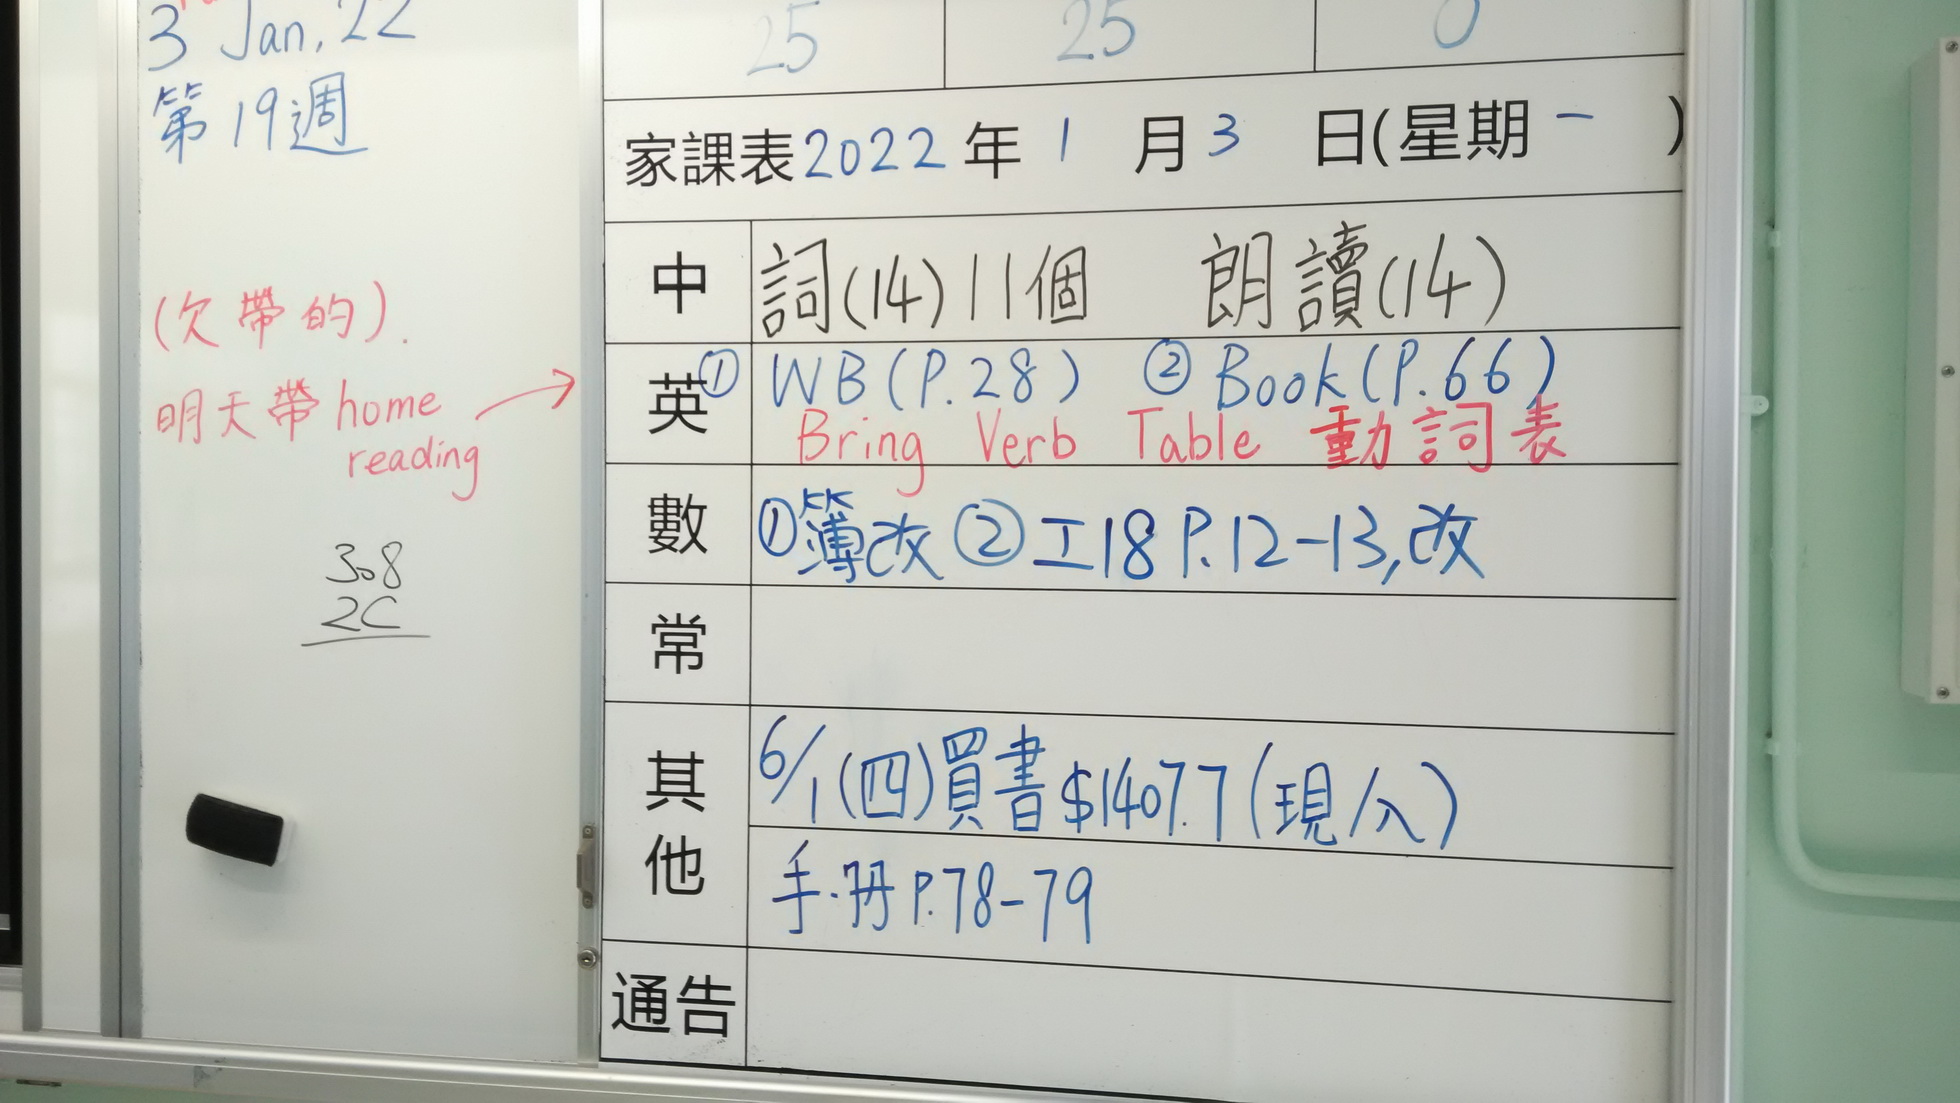 3 Jan, 22
第19週
(欠帶的).
明天帶 home
reading
308
2C
25 25 0
家課表 2022 年 1 月 3 日(星期一)
中 詞(14)11個 朗讀(14)
英 ① WB(P.28) ② Book(P.66)
Bring Verb Table 動詞表
數 ①簿改 ②工18 P.12-13,改
常
其他 6/1(四)買書$1407.7(現/入)
手.冊 P.78-79
通告